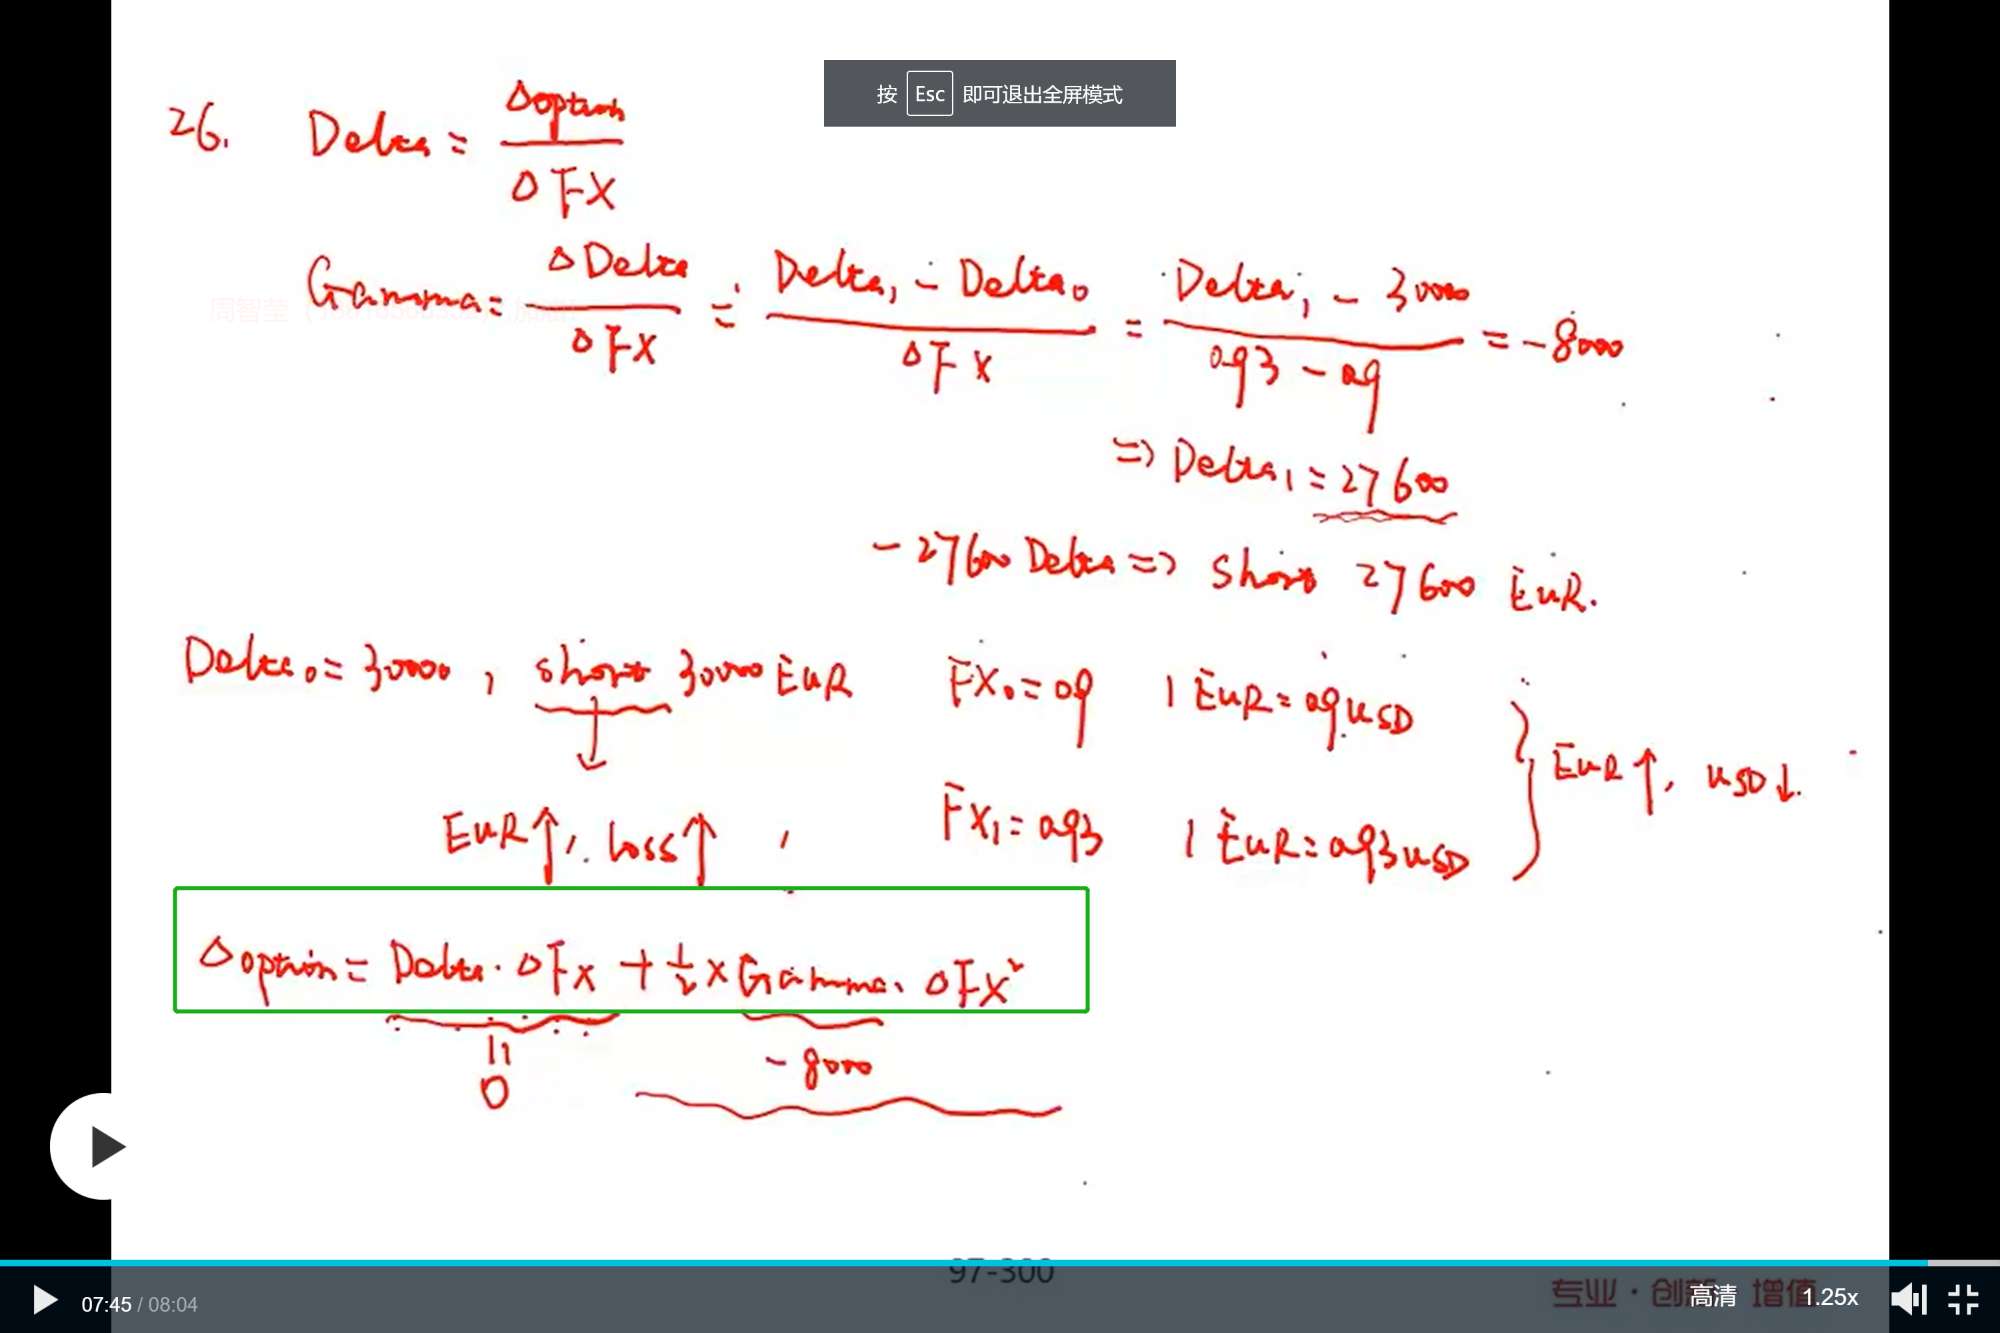 按 Esc 即可退出全屏模式
26. Delta = Δoption / ΔFX
Gamma = ΔDelta / ΔFX = Delta₁ - Delta₀ / ΔFX = Delta₁ - 30000 / 0.93 - 0.9 = -8000
=> Delta₁ = 27600
-27600 Delta => short 27600 EUR.
Delta₀ = 30000, short 30000 EUR FX₀ = 0.9 1 EUR = 0.9 USD
EUR↑, USD↓.
EUR↑, loss↑, FX₁ = 0.93 1 EUR = 0.93 USD
Δoption = Delta · ΔFX + ½ × Gamma · ΔFX²
= 0 -8000
97-300
专业·创新 增值
07:45 / 08:04 高清 1.25x